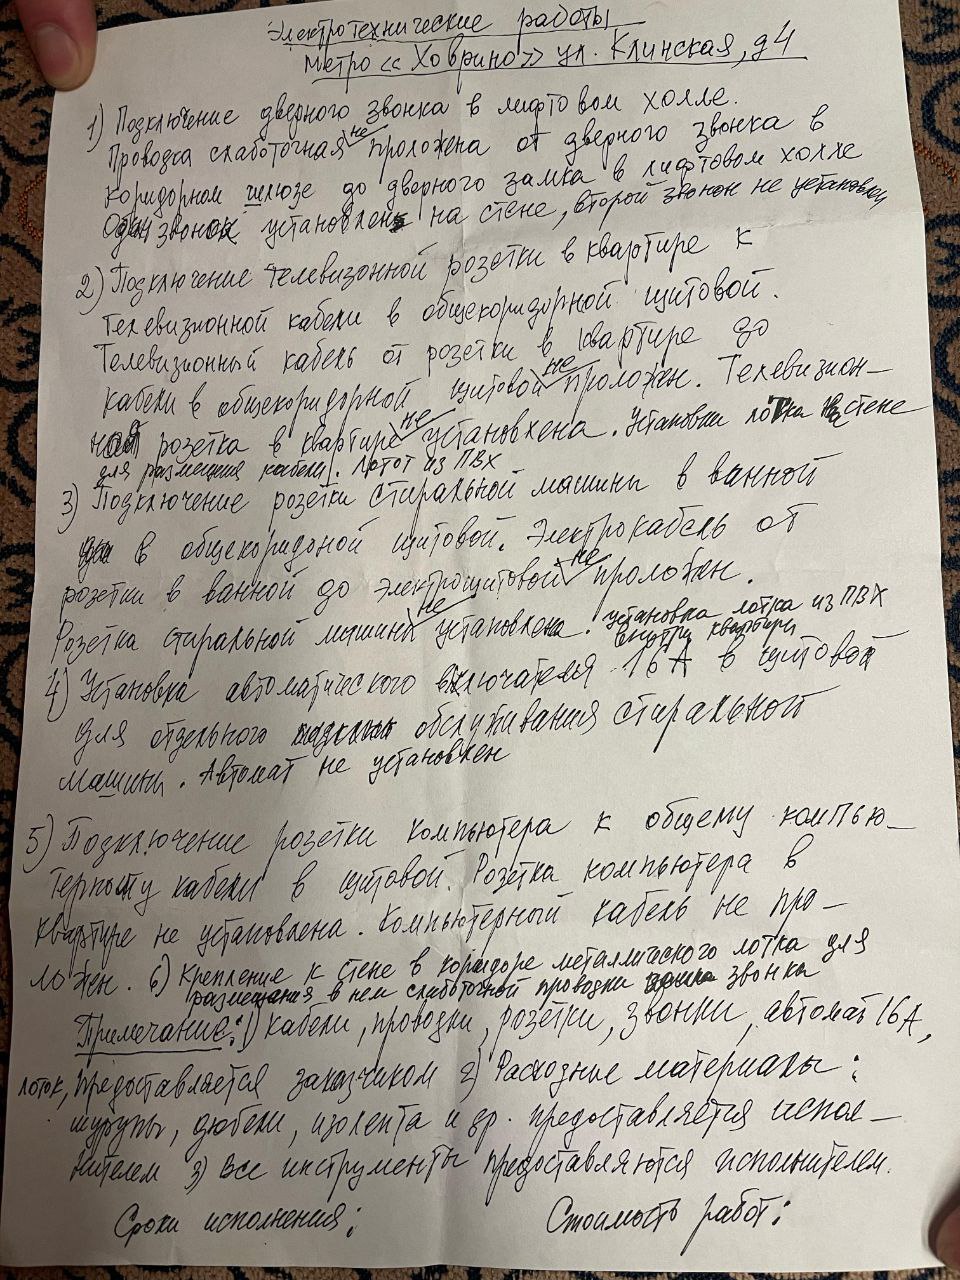 Электротехнические работы
метро «Ховрино» ул. Клинская, д4
1) Подключение дверного звонка в лифтовом холле.
Проводка слаботочная не проложена от дверного звонка в
коридорном шлюзе до дверного замка в лифтовом холле
Один звонок установлен на стене, второй звонок не установлен
2) Подключение телевизонной розетки в квартире к
телевизионной кабели в общекоридорной щитовой.
Телевизионный кабель от розетки в квартире до
кабели в общекоридорной щитовой не проложен. Телевизион-
ная розетка в квартире не установлена. Установки лотка на стене
для размещия кабели. Лотот из ПВХ
3) Подключение розетки стиральной машины в ванной
в общекоридоной щитовой. Электрокабель от
розетки в ванной до электрощитовой не проложен.
Розетка стиральной машины не установлена. установка лотка из ПВХ
внутри квартиры
4) Установка автоматического включателя 16А в щитовой
для отдельного обслуживания стиральной
машины. Автомат не установлен
5) Подключение розетки компьютера к общему компью-
терному кабели в щитовой. Розетка компьютера в
квартире не установлена. Компьютерный кабель не про-
ложен. 6) Крепление к стене в коридоре металлического лотка для
размещения в нем слаботочной проводки звонка
Примечание: 1) кабели, проводки, розетки, звонки, автомат 16А,
лоток, предоставляется заказчиком 2) Расходные материалы:
шурупы, дюбели, изолента и др. предоставляется испол-
нителем 3) Все инструменты предоставляются исполнителем.
Сроки исполнения: Стоимость работ: